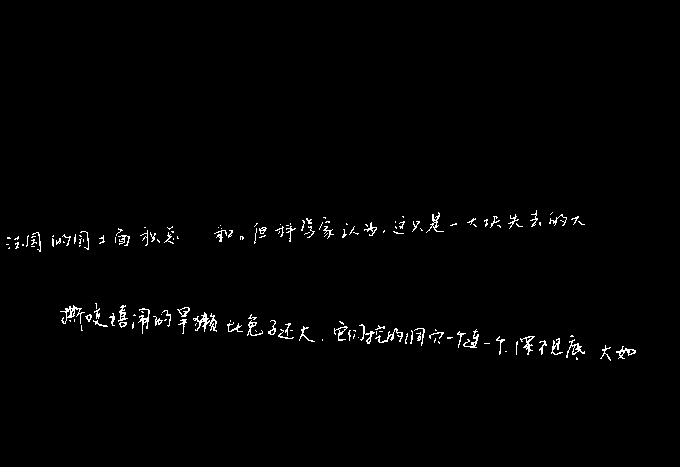 法国的国土面积总 和。但科学家认为,这只是一大块失去的大
撕咬嬉闹的旱獭比兔子还大,它们挖的洞穴一个连一个,深不见底 大如